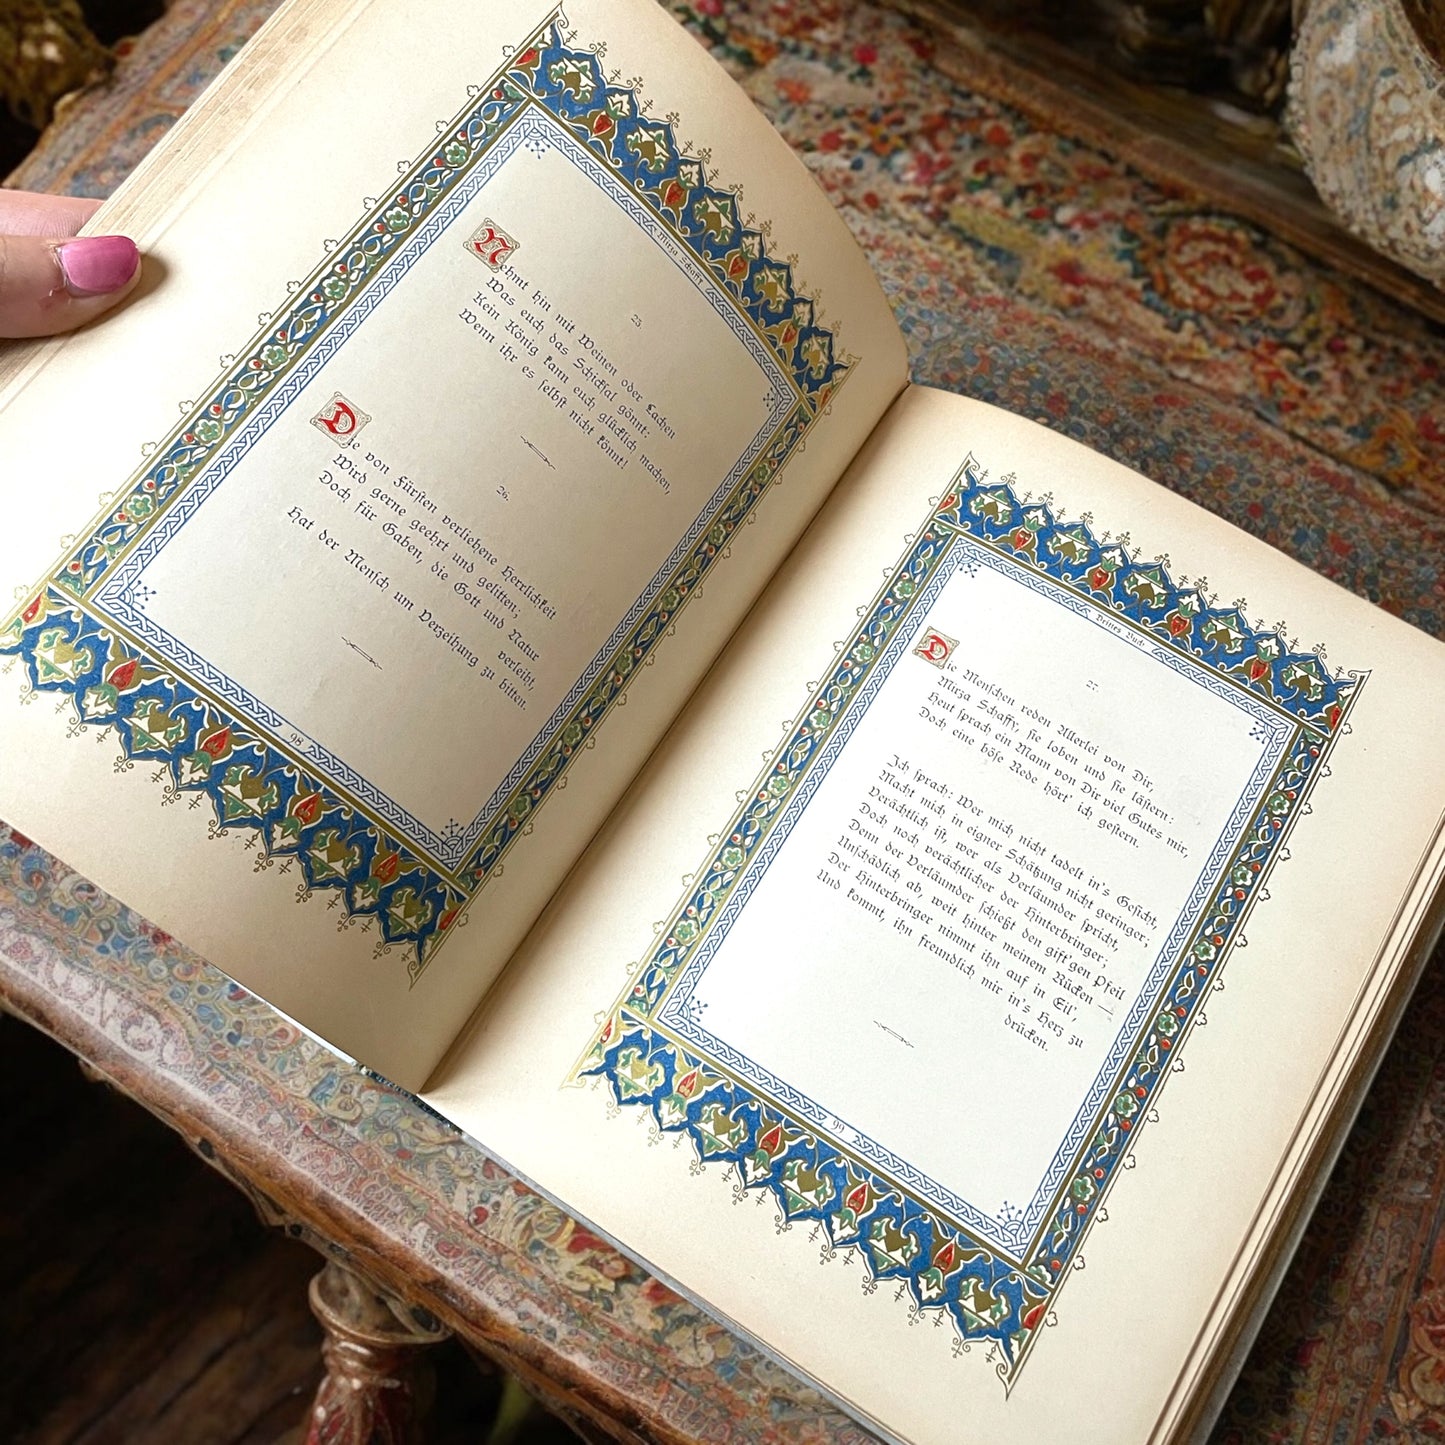 Mirza Schaffy
25.
Nehmt hin mit Weinen oder Lachen
Was euch das Schicksal gönnt:
Kein König kann euch glücklich machen,
Wenn ihr es selbst nicht könnt!
26.
Die von Fürsten verliehene Herrlichkeit
Wird gerne geehrt und gelitten;
Doch für Gaben, die Gott und Natur
verleiht,
Hat der Mensch um Verzeihung zu bitten.
98
27.
Die Menschen reden Allerlei von Dir,
Mirza Schaffy, sie loben und sie lästern:
Heut sprach ein Mann von Dir viel Gutes mir,
Doch eine böse Rede hört' ich gestern.
Ich sprach: Wer mich nicht tadelt in's Gesicht,
Macht mich in eigner Schätzung nicht geringer;
Verächtlich ist, wer als Verläumder spricht,
Doch noch verächtlicher der Hinterbringer;
Denn der Verläumder schießt den gift'gen Pfeil
Unschädlich ab, weit hinter meinem Rücken —
Der Hinterbringer nimmt ihn auf in Eil',
Und kommt, ihn freundlich mir in's Herz zu
drücken.
99